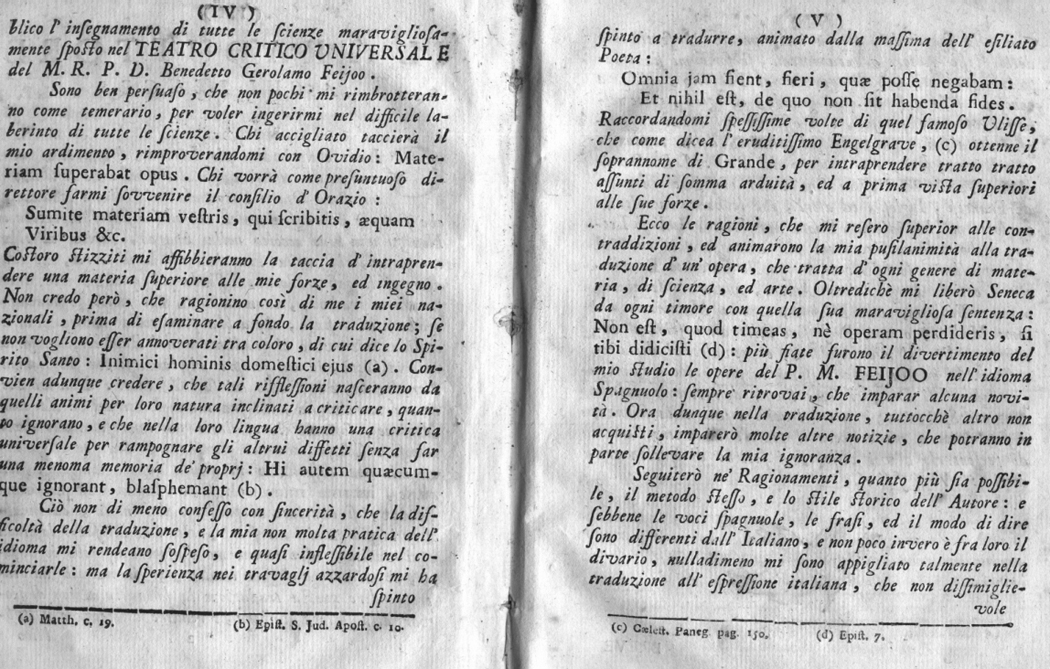 (IV)
blico l' insegnamento di tutte le scienze maravigliosa-
mente sposto nel TEATRO CRITICO UNIVERSALE
del M. R. P. D. Benedetto Gerolamo Feijoo .
Sono ben persuaso , che non pochi mi rimbrotteran-
no come temerario , per voler ingerirmi nel difficile la-
berinto di tutte le scienze . Chi accigliato taccierà il
mio ardimento , rimproverandomi con Ovidio : Mate-
riam superabat opus . Chi vorrà come presuntuoso di-
rettore farmi sovvenire il consilio d' Orazio :
Sumite materiam vestris , qui scribitis , æquam
Viribus &c.
Costoro stizziti mi affibbieranno la taccia d' intrapren-
dere una materia superiore alle mie forze , ed ingegno .
Non credo però , che ragionino così di me i miei na-
zionali , prima di esaminare a fondo la traduzione ; se
non vogliono esser annoverati tra coloro , di cui dice lo Spi-
rito Santo : Inimici hominis domestici ejus (a) . Con-
vien adunque credere , che tali rifflessioni nasceranno da
quelli animi per loro natura inclinati a criticare , quan-
to ignorano , e che nella loro lingua hanno una critica
universale per rampognare gli altrui diffetti senza far
una menoma memoria de' proprj : Hi autem quæcum-
que ignorant , blasphemant (b) .
Ciò non di meno confesso con sincerità , che la dif-
ficoltà della traduzione , e la mia non molta pratica dell'
idioma mi rendeano sospeso , e quasi inflessibile nel co-
minciarle : ma la sperienza nei travaglj azzardosi mi ha
spinto
(a) Matth. c. 19. (b) Epist. S. Jud. Apost. c. 10.
( V )
spinto a tradurre , animato dalla massima dell' esiliato
Poeta :
Omnia jam fient , fieri , quæ posse negabam :
Et nihil est , de quo non sit habenda fides .
Raccordandomi spessissime volte di quel famoso Ulisse ,
che come dicea l' eruditissimo Engelgrave , (c) ottenne il
soprannome di Grande , per intraprendere tratto tratto
assunti di somma arduità , ed a prima vista superiori
alle sue forze .
Ecco le ragioni , che mi resero superior alle con-
traddizioni , ed animarono la mia pusilanimità alla tra-
duzione d' un' opera , che tratta d' ogni genere di mate-
ria , di scienza , ed arte . Oltredichè mi liberò Seneca
da ogni timore con quella sua maravigliosa sentenza :
Non est , quod timeas , nè operam perdideris , si
tibi didicisti (d) : più fiate furono il divertimento del
mio studio le opere del P. M. FEIJOO nell' idioma
Spagnuolo : sempre ritrovai , che imparar alcuna novi-
tà . Ora dunque nella traduzione , tuttocchè altro non
acquisti , imparerò molte altre notizie , che potranno in
parte sollevare la mia ignoranza .
Seguiterò ne' Ragionamenti , quanto più sia possibi-
le , il metodo stesso , e lo stile storico dell' Autore : e
sebbene le voci spagnuole , le frasi , ed il modo di dire
sono differenti dall' Italiano , e non poco invero è fra loro il
divario , nulladimeno mi sono appigliato talmente nella
traduzione all' espressione italiana , che non dissimiglie-
vole
(c) Cœlest. Paneg. pag. 150. (d) Epist. 7.